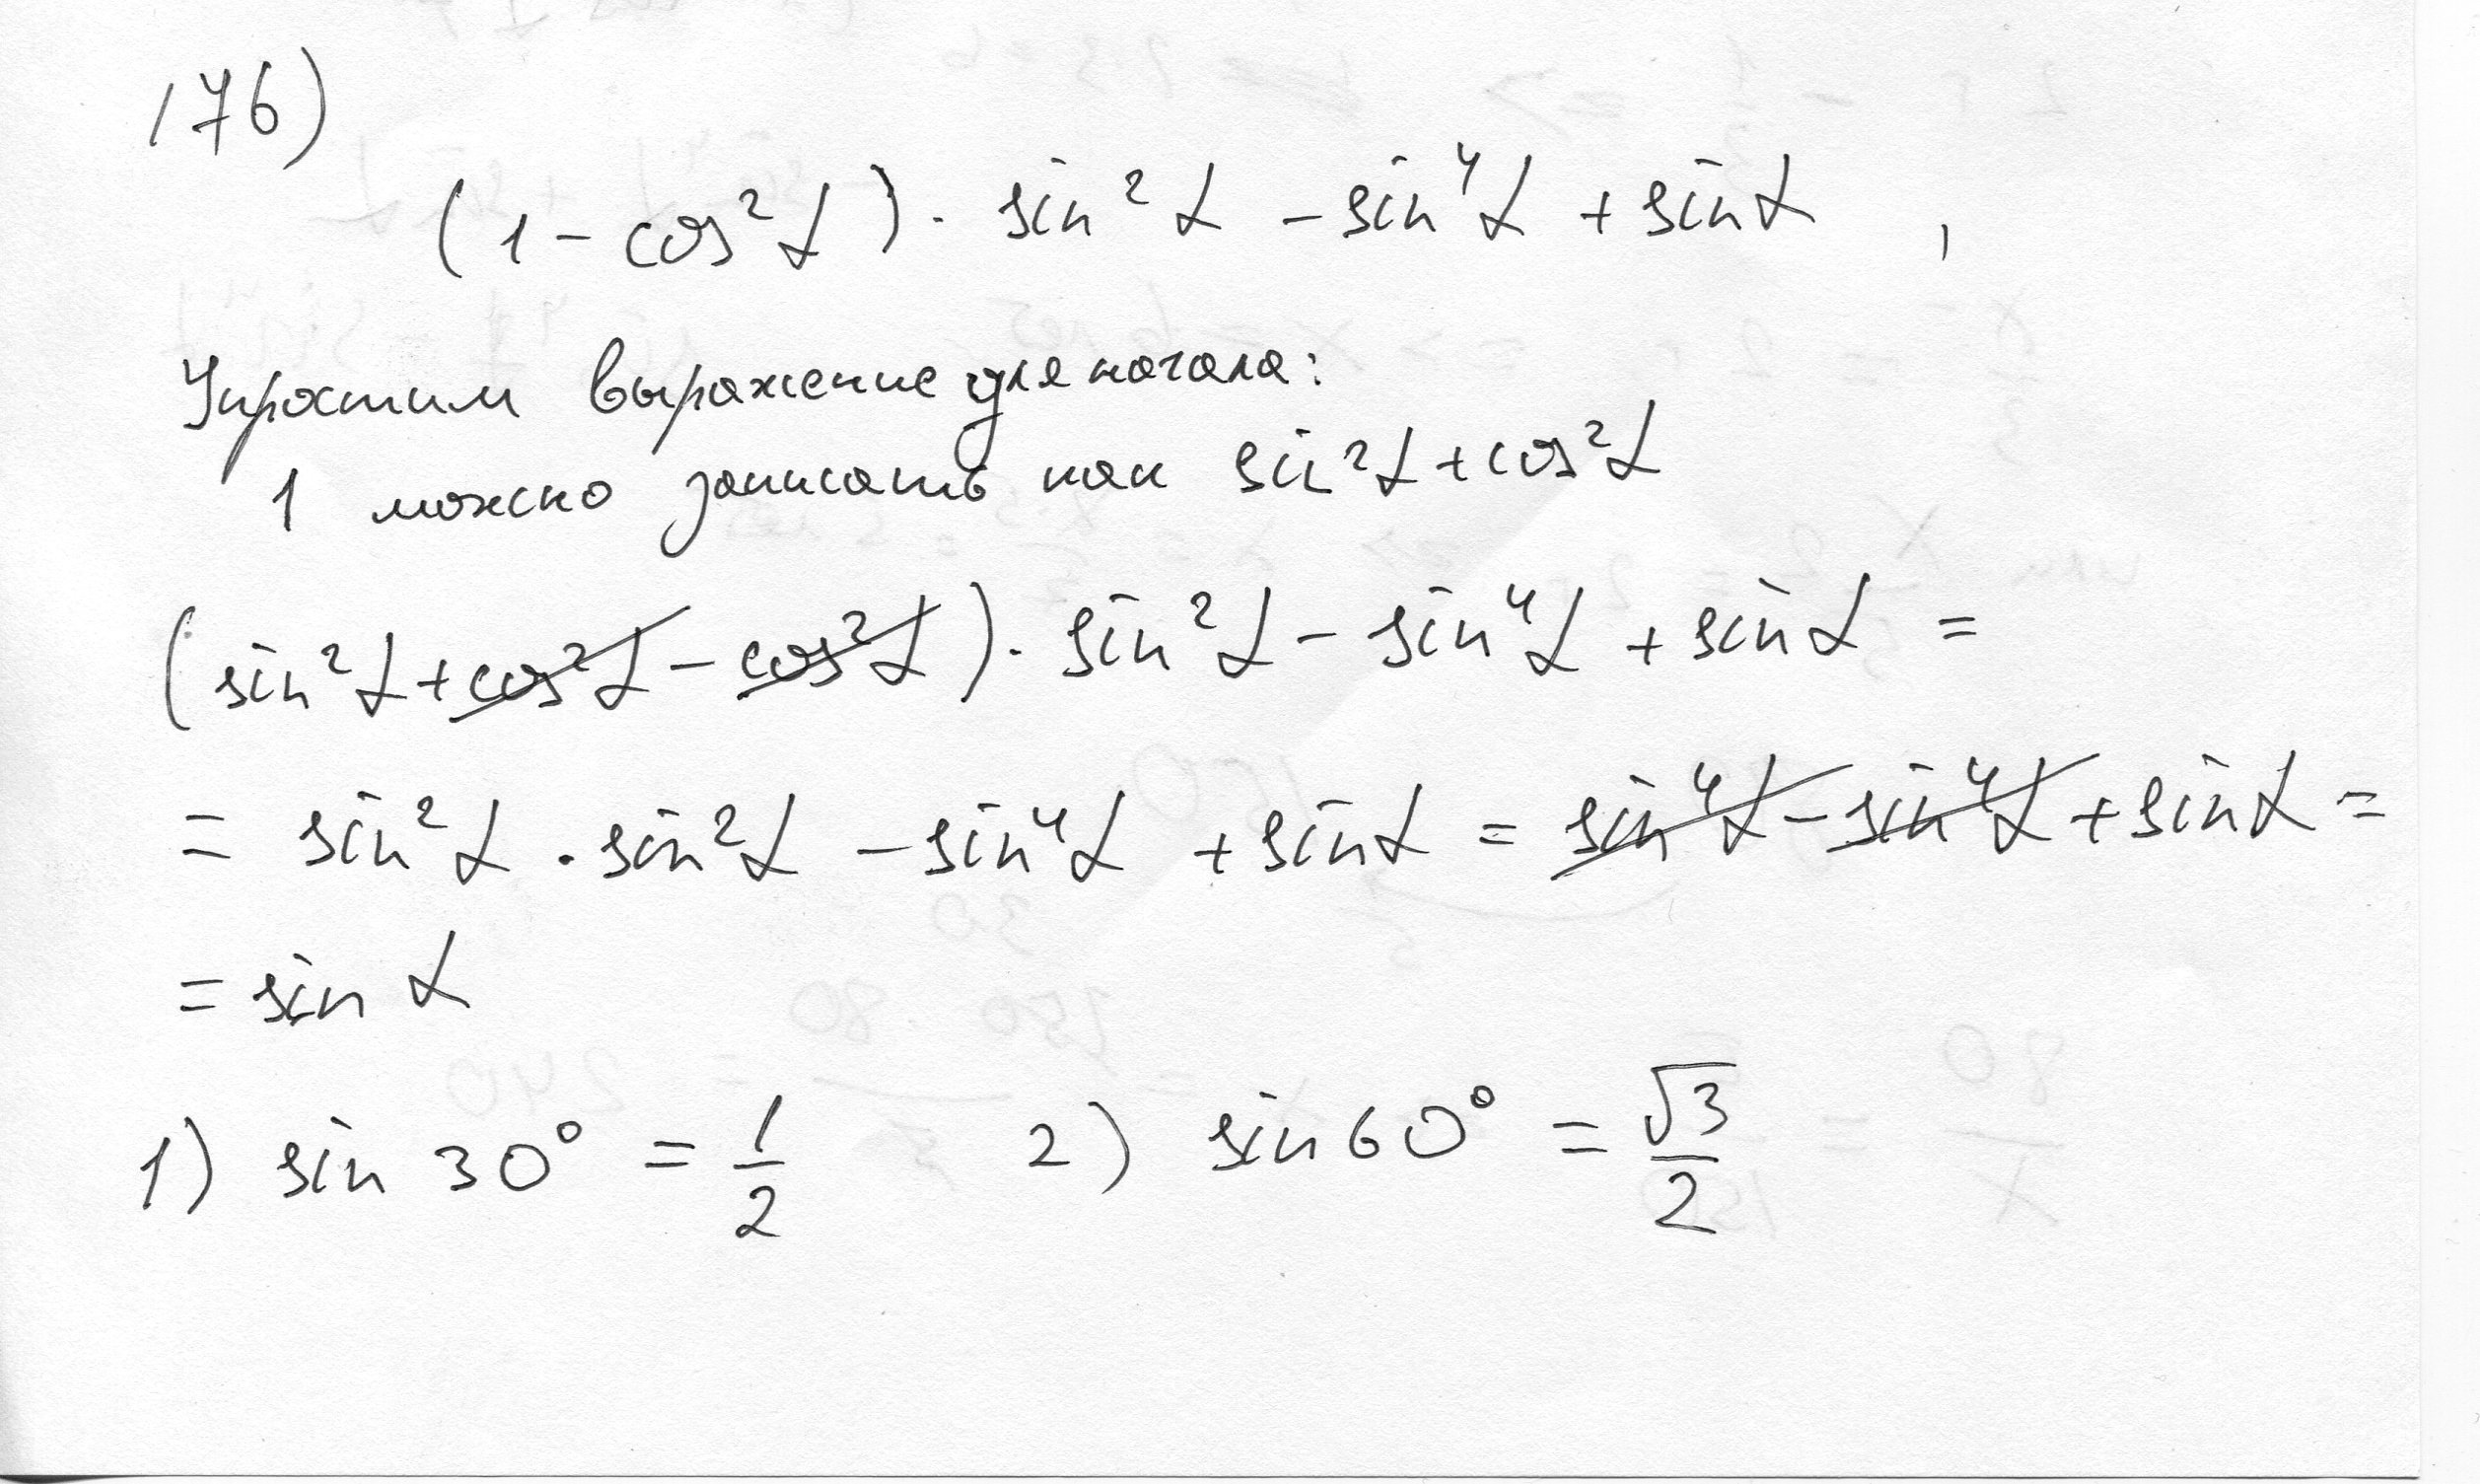 176)
(1 - cos²α) · sin²α - sin⁴α + sinα ,
Упростим выражение для начала:
1 можно записать как sin²α + cos²α
(sin²α + cos²α - cos²α) · sin²α - sin⁴α + sinα =
= sin²α · sin²α - sin⁴α + sinα = sin⁴α - sin⁴α + sinα =
= sin α
1) sin 30° = 1/2 2) sin 60° = √3/2